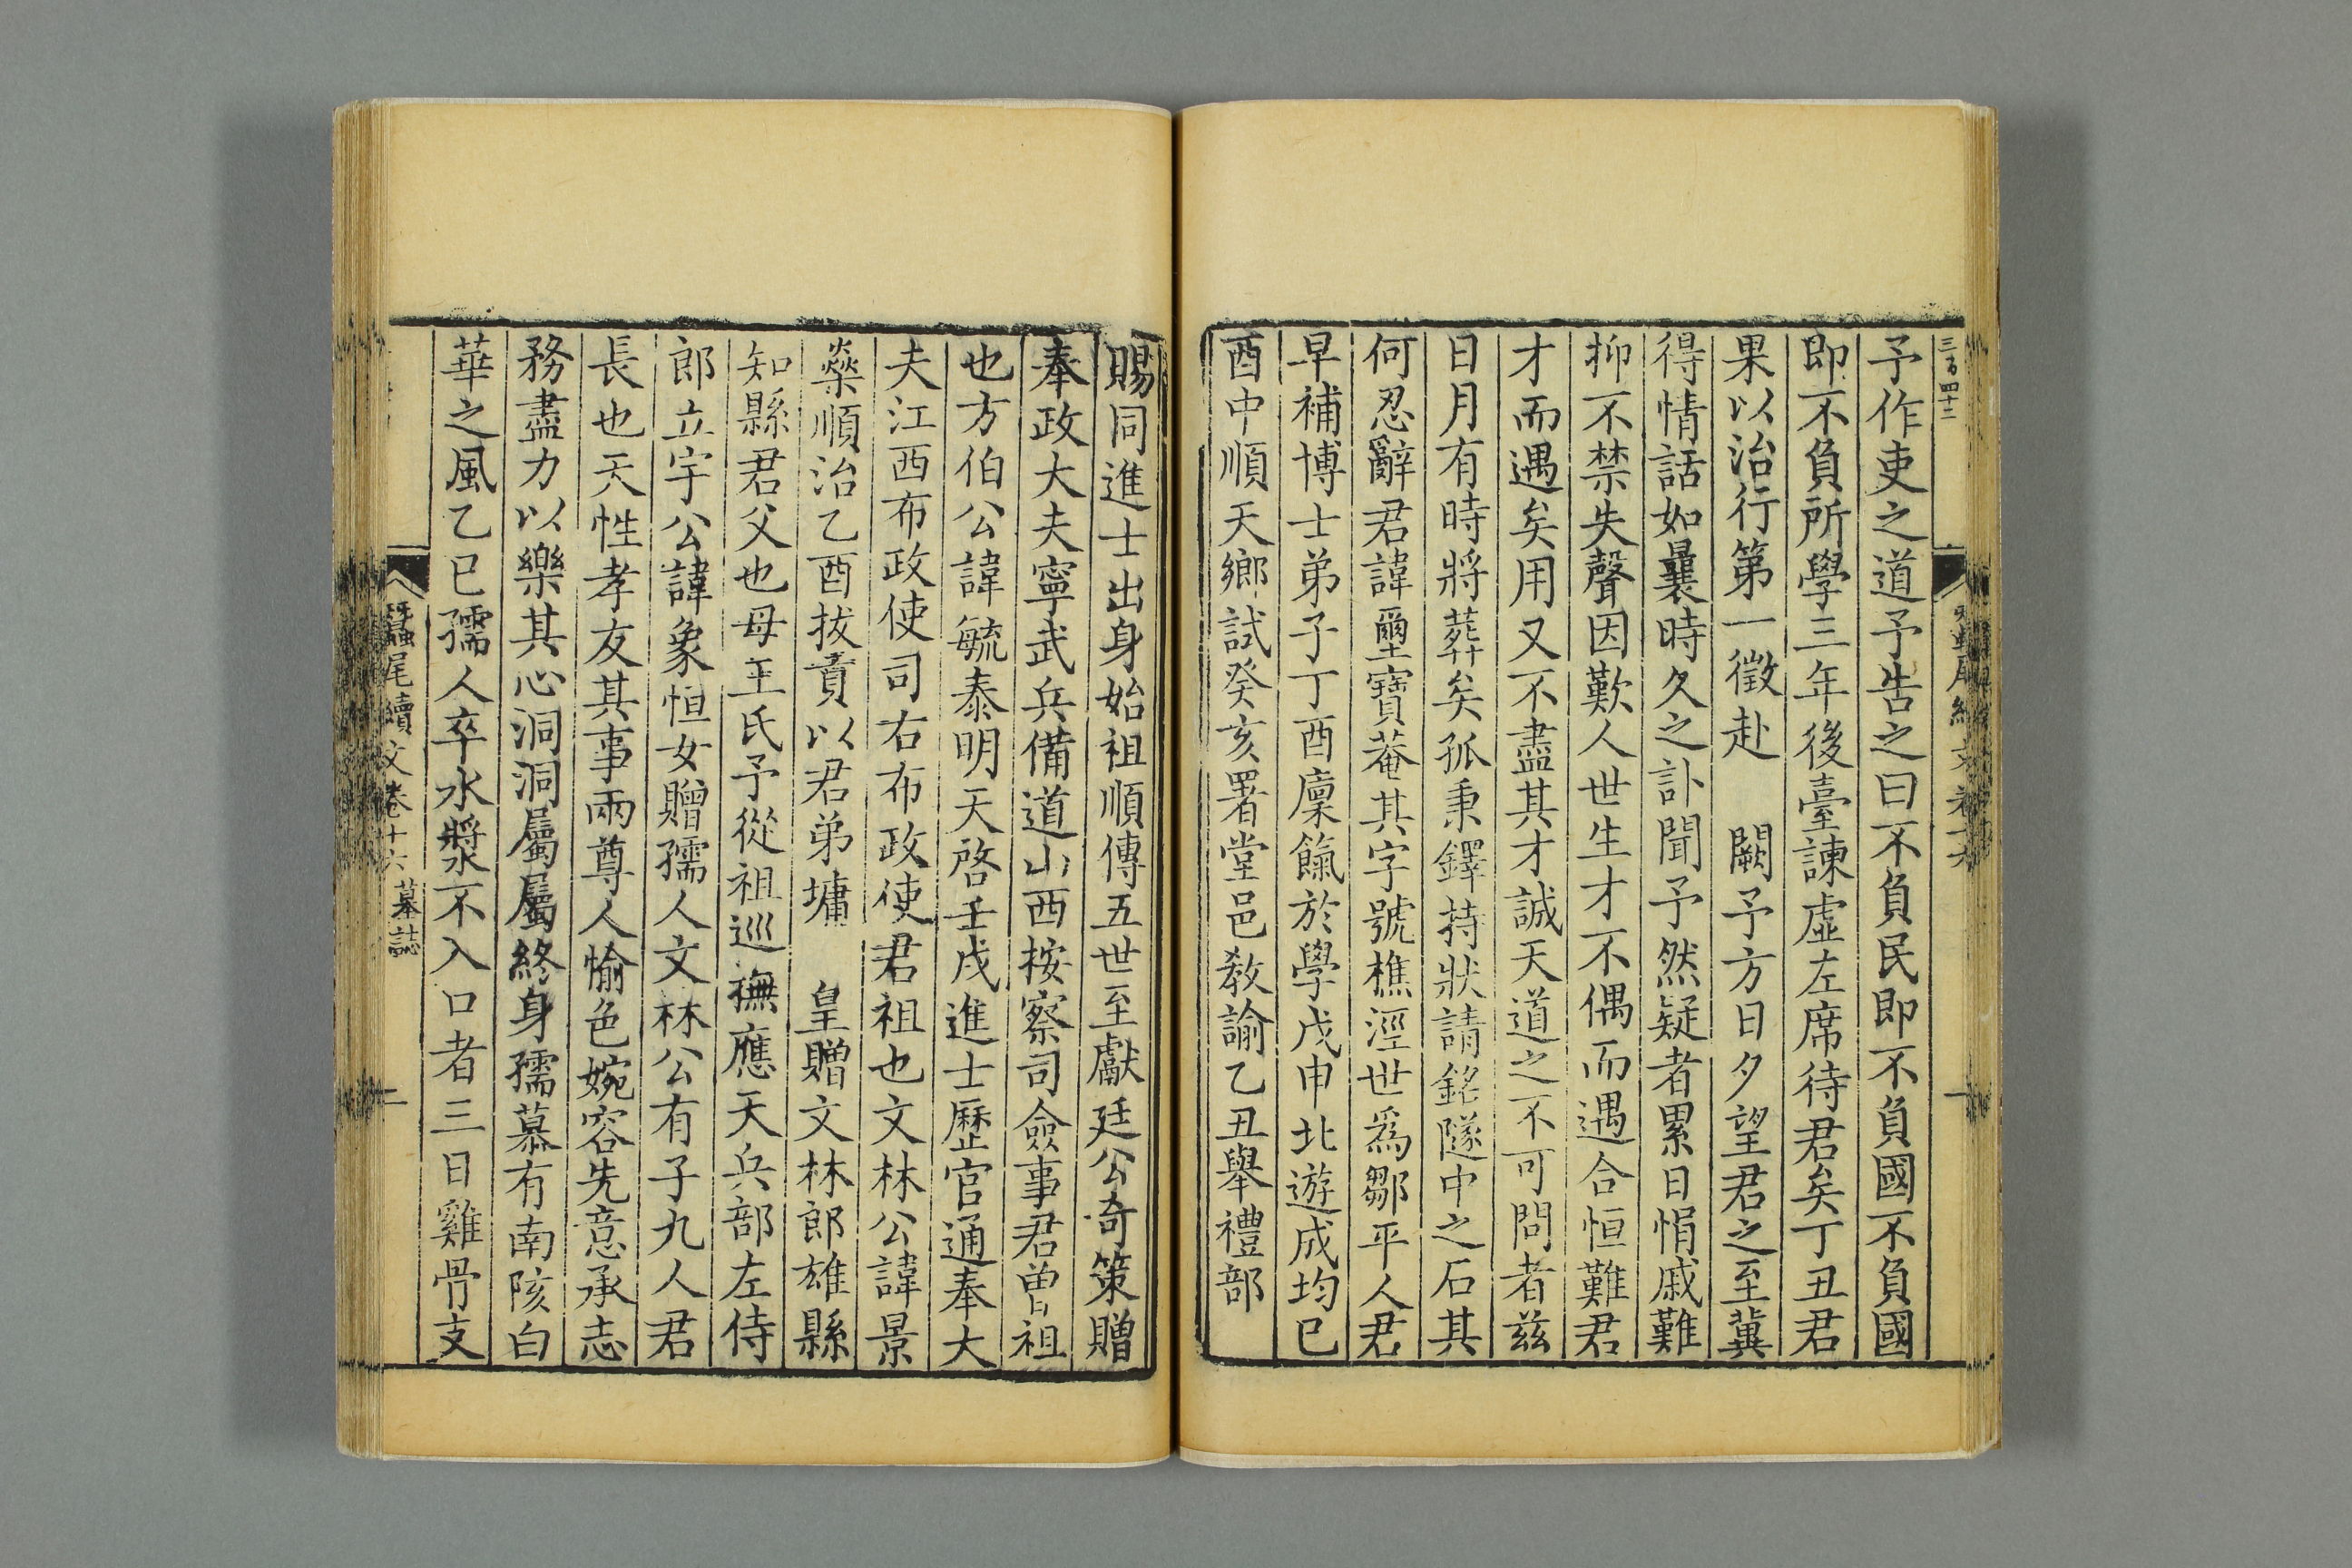 三百四十二
予作吏之道予告之曰不負民即不負國不負國
即不負所學三年後臺諫虛左席待君矣丁丑君
果以治行第一徵赴　闕予方日夕望君之至冀
得情話如曩時久之訃聞予然疑者累日悁戚難
抑不禁失聲因歎人世生才不偶而遇合恒難君
才而遇矣用又不盡其才誠天道之不可問者茲
日月有時將葬矣孤秉鐸持狀請銘隧中之石其
何忍辭君諱璽寶菴其字號樵涇世爲鄒平人君
早補博士弟子丁酉廩餼於學戊申北遊成均已
酉中順天鄉試癸亥署堂邑敎諭乙丑舉禮部
賜同進士出身始祖順傳五世至獻廷公奇策贈
奉政大夫寧武兵備道山西按察司僉事君曽祖
也方伯公諱毓泰明天啓壬戌進士歷官通奉大
夫江西布政使司右布政使君祖也文林公諱景
燊順治乙酉拔貢以君弟墉　皇贈文林郎雄縣
知縣君父也母王氏予從祖巡撫應天兵部左侍
郎立宇公諱象恒女贈孺人文林公有子九人君
長也天性孝友其事兩尊人愉色婉容先意承志
務盡力以樂其心洞洞屬屬終身孺慕有南陔白
華之風乙巳孺人卒水漿不入口者三日雞骨支
蠶尾續文卷十六 墓誌 二